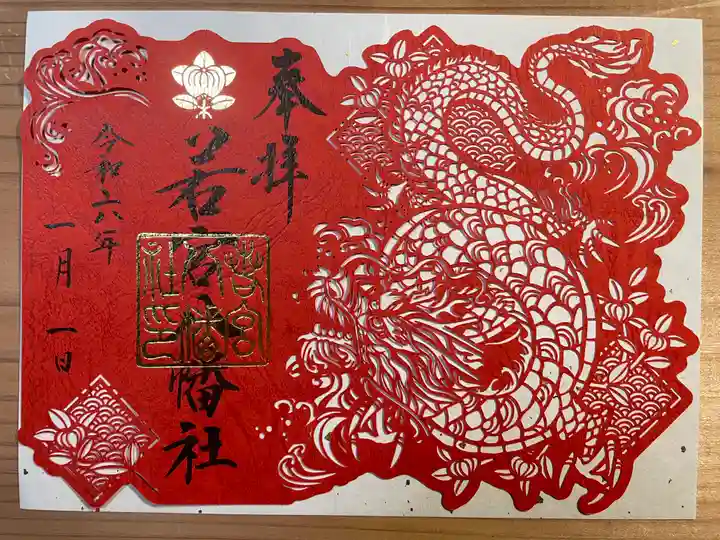 奉拝
若宮八幡社
若宮八幡社印
令和六年
一月一日